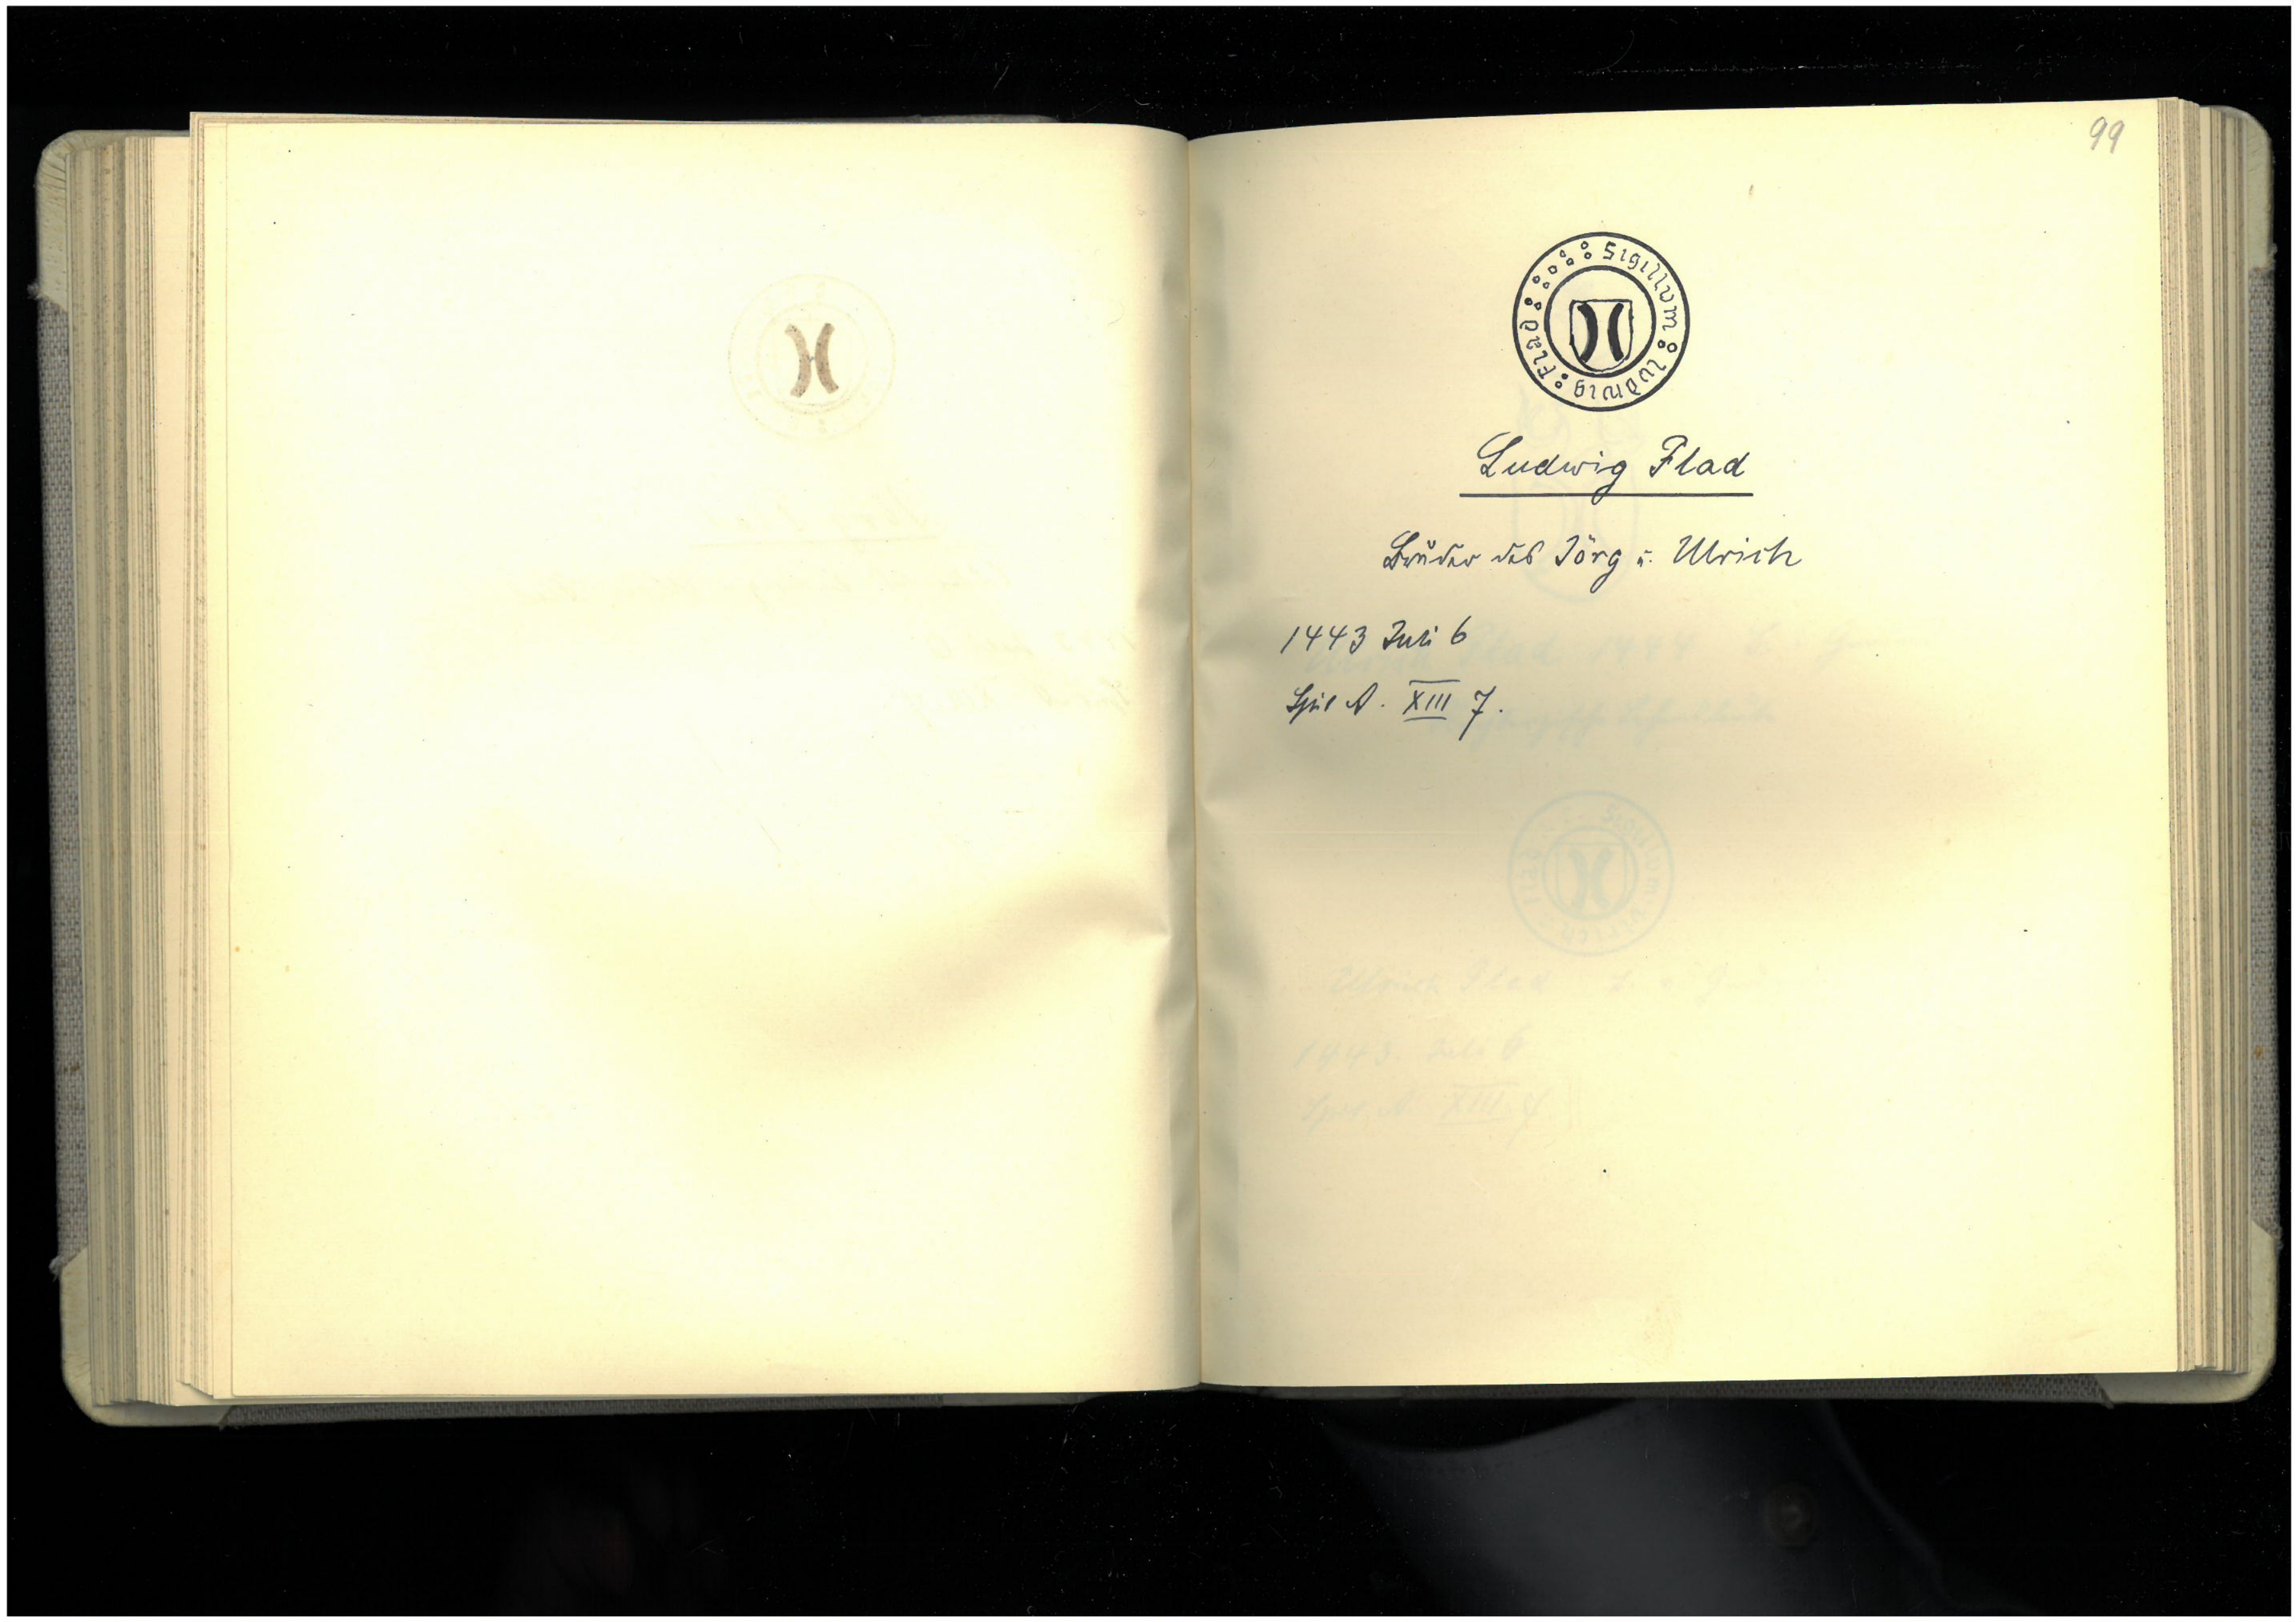 99
Sigillvm ludwig Flad
Ludwig Flad
Bruder des Jörg u. Ulrich
1443 Juli 6
A. XIII 7.